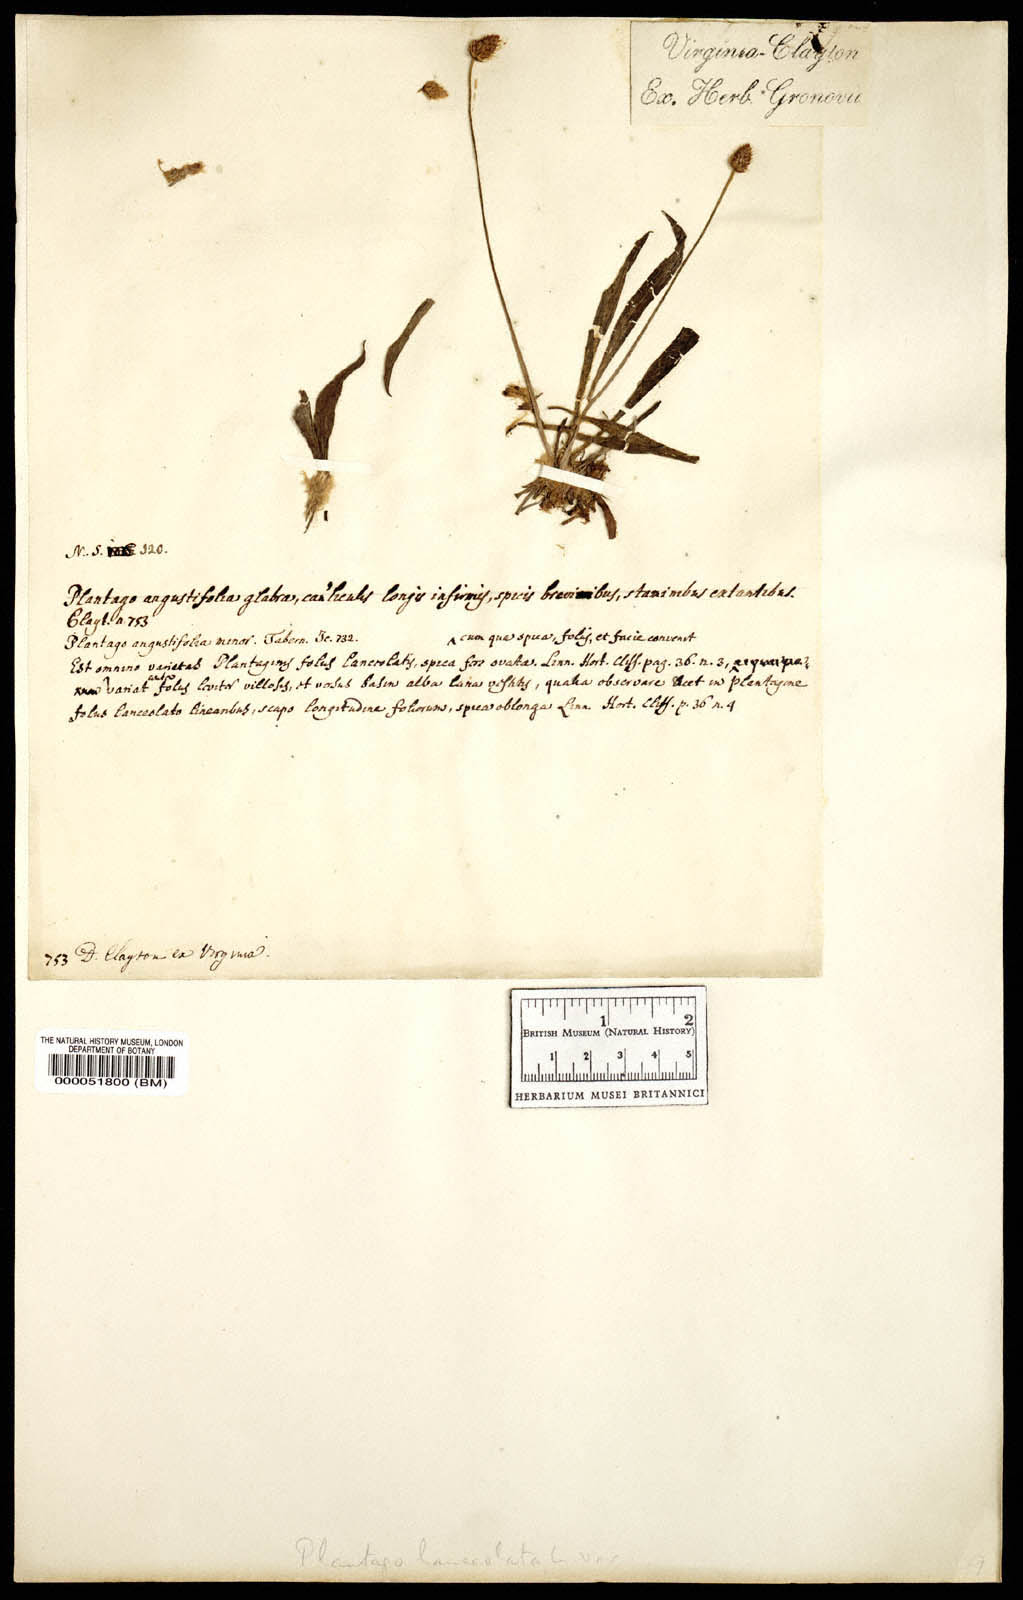 Virginia - Clayton
Ex. Herb. Gronovii
N. S. 320.
Plantago angustifolia glabra, cauliculis longis infirmis, spicis brevioribus, staminibus extantibus.
Clayt. n. 753
Plantago angustifolia minor. Tabern. Ic. 732.
cum qua spica, foliis, et facie convenit
Est omnino varietas Plantaginis foliis lanceolatis, spica fere ovata. Linn. Hort. Cliff. pag. 36. n. 3,
variat foliis leviter villosis, et versus basin alba lana vestitis, qualia observare licet in plantagine
foliis lanceolato linearibus, scapo longitudine foliorum, spica oblonga Linn. Hort. Cliff. p. 36 n. 4
753 D. Clayton ex Virginia.
1 2
BRITISH MUSEUM (NATURAL HISTORY)
1 2 3 4 5
HERBARIUM MUSEI BRITANNICI
THE NATURAL HISTORY MUSEUM, LONDON
DEPARTMENT OF BOTANY
000051800 (BM)
Plantago lanceolata L. var